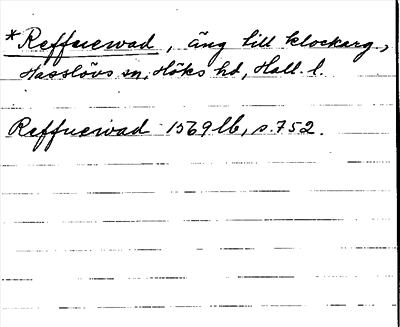 *Reffuewad, äng till klockarg.,
Hasslövs sn, Höks hd, Hall. l.
Reffuewad 1569 lb, s. 752.